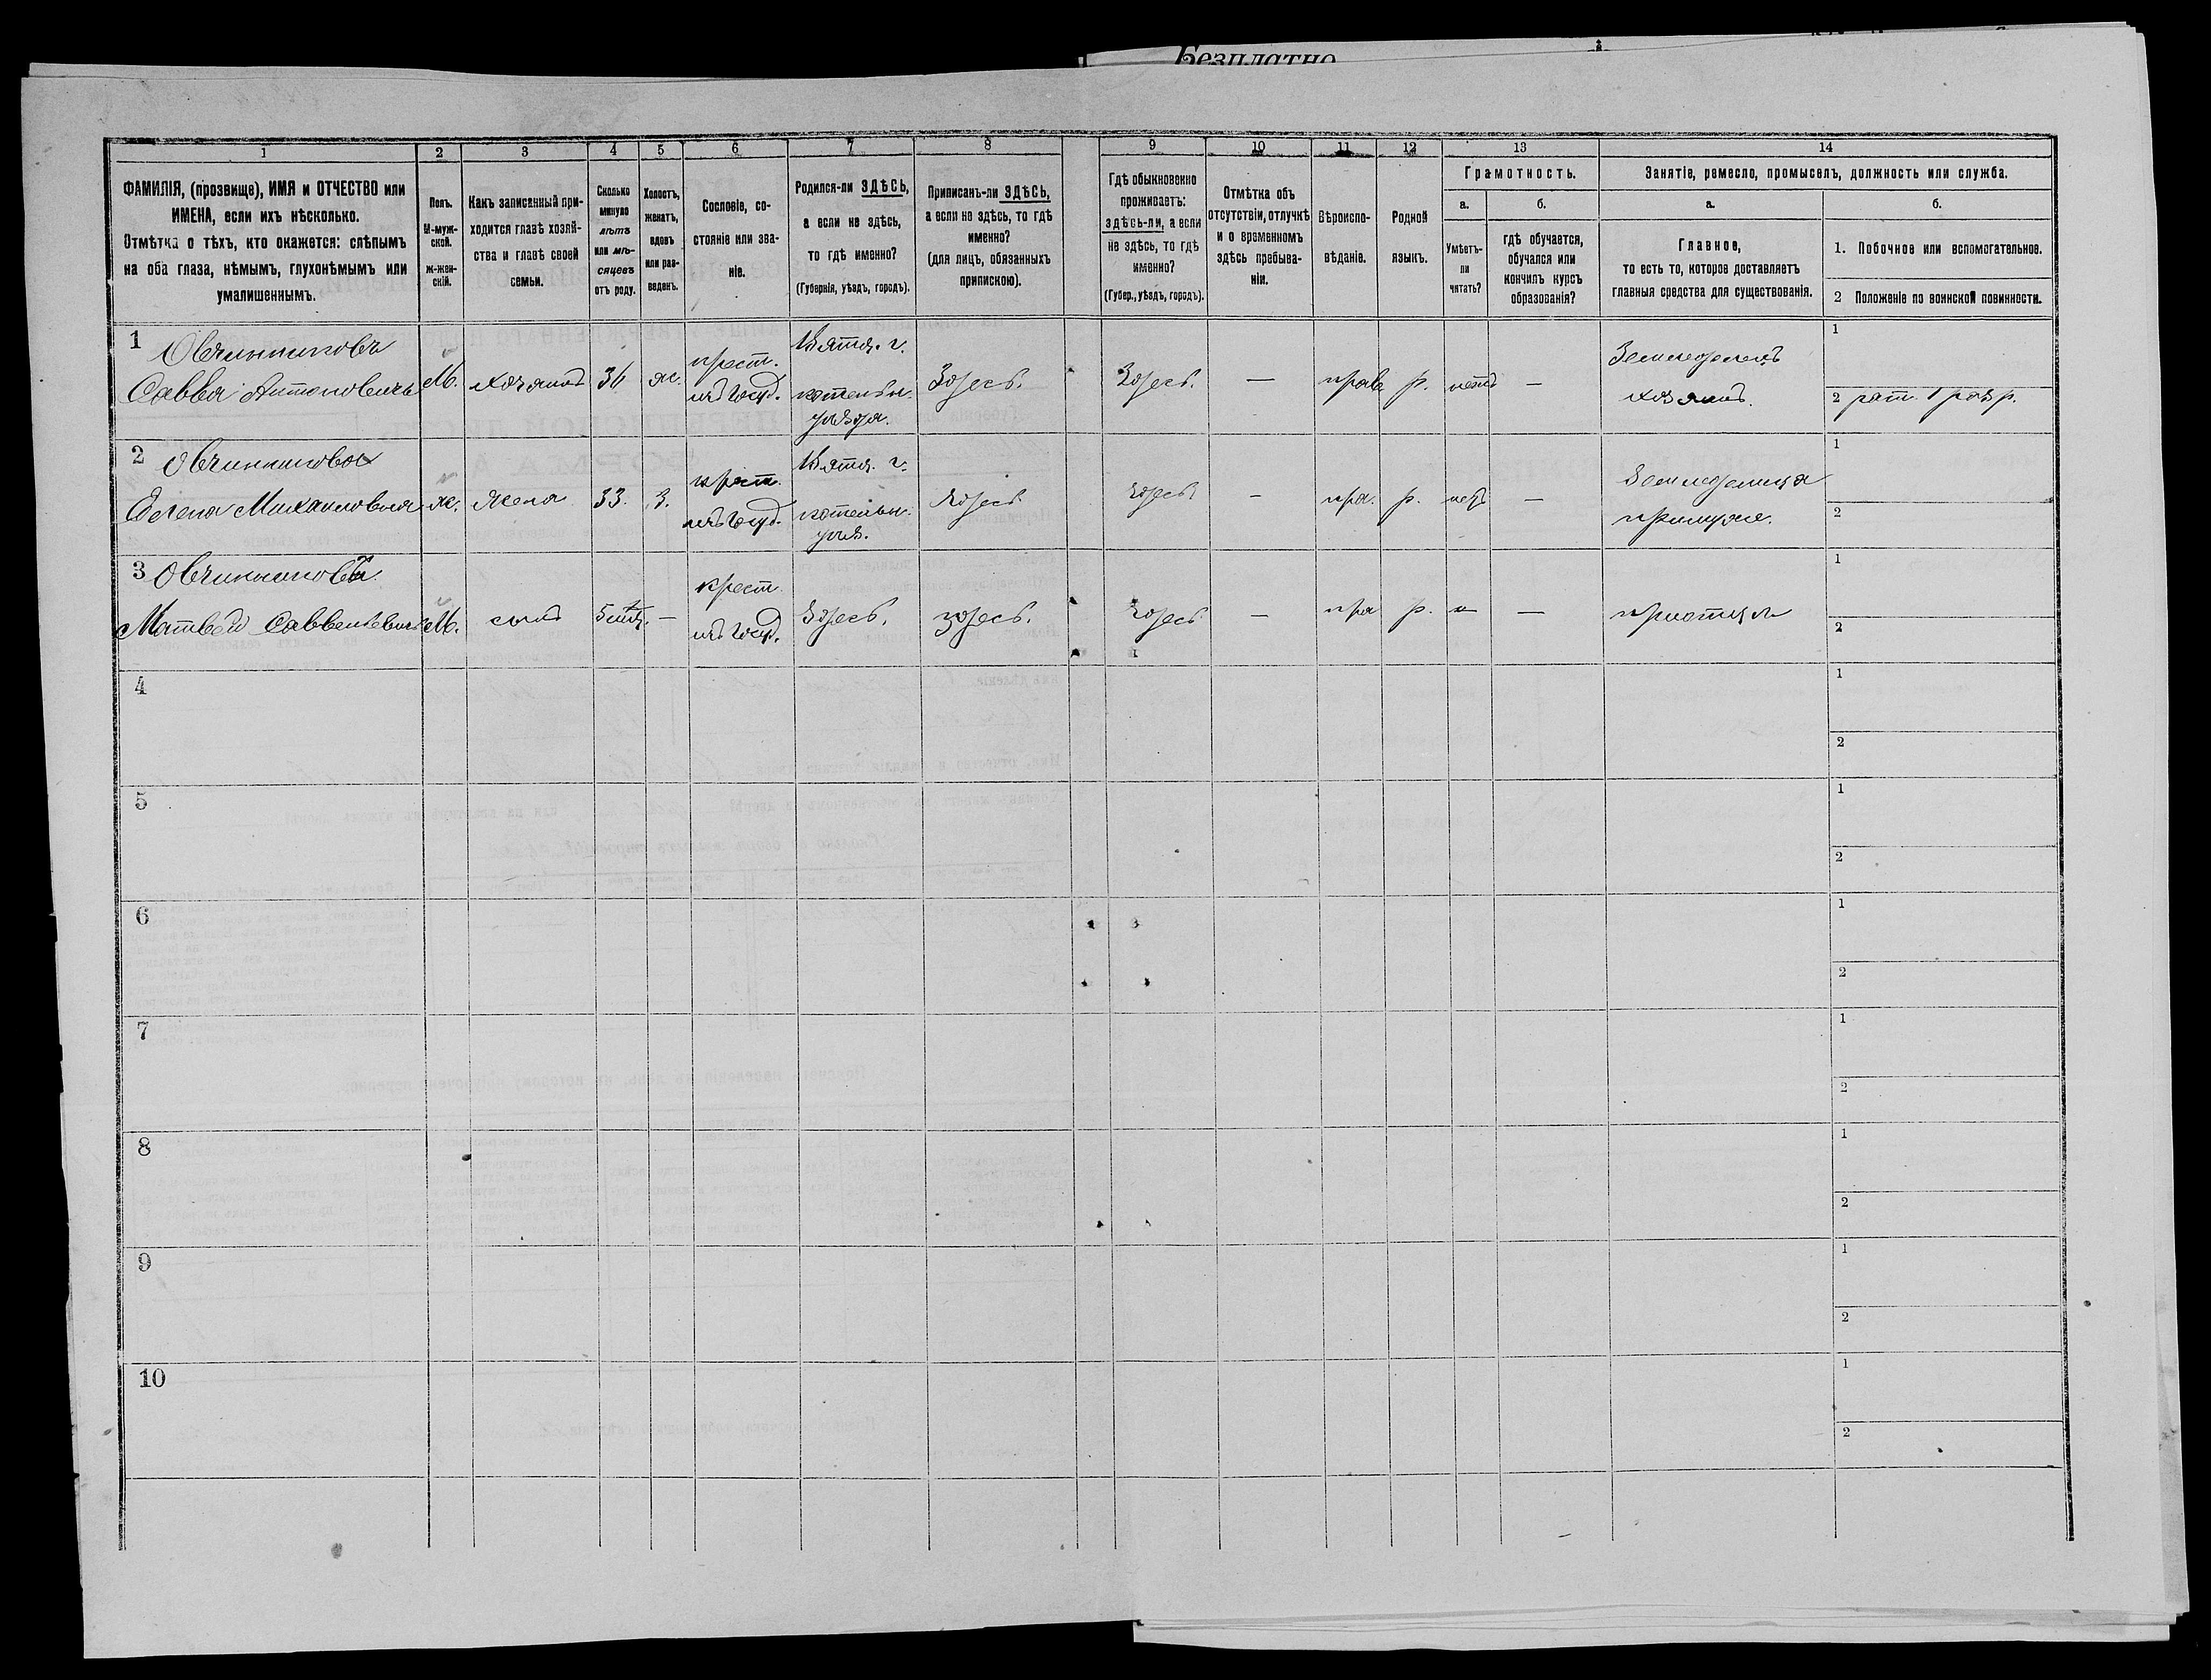 Безплатно
1
2
3
4
5
6
7
8
9
10
11
12
13
14
ФАМИЛІЯ, (прозвище), ИМЯ и ОТЧЕСТВО или
ИМЕНА, если ихъ нѣсколько.
Отмѣтка о тѣхъ, кто окажется: слѣпымъ
на оба глаза, нѣмымъ, глухонѣмымъ или
умалишеннымъ.
Полъ.
М-муж-
ской.
ж-жен-
скій.
Какъ записанный при-
ходится главѣ хозяй-
ства и главѣ своей
семьи.
Сколько
минуло
лѣтъ
или мѣ-
сяцевъ
отъ роду.
Холостъ,
женатъ,
вдовъ
или раз-
веденъ.
Сословіе, со-
стояніе или зва-
ніе.
Родился-ли ЗДѢСЬ,
а если не здѣсь,
то гдѣ именно?
(Губернія, уѣздъ, городъ).
Приписанъ-ли ЗДѢСЬ,
а если не здѣсь, то гдѣ
именно?
(для лицъ, обязанныхъ
припискою).
Гдѣ обыкновенно
проживаетъ:
здѣсь-ли, а если
не здѣсь, то гдѣ
именно?
(Губер., уѣздъ, городъ).
Отмѣтка объ
отсутствіи, отлучкѣ
и о временномъ
здѣсь пребыва-
ніи.
Вѣроиспо-
вѣданіе.
Родной
языкъ.
Грамотность.
а.
б.
Умѣетъ-
ли
читать?
гдѣ обучается,
обучался или
кончилъ курсъ
образованія?
Занятіе, ремесло, промыселъ, должность или служба.
а.
б.
Главное,
то есть то, которое доставляетъ
главныя средства для существованія.
1. Побочное или вспомогательное.
2 Положеніе по воинской повинности.
1 Овчинниковъ
Савва Антоновичъ М. хозяинъ 36 ж. крест. изъ госуд. Вятск. г. котельн. уѣзда. Здесь. Здесь. — прав р. нетъ — Земледелецъ хозяинъ.
1
2 рат. 1 разр.
2 Овчинникова
Елена Михаиловна ж. жена 33. З. крест. изъ госуд. Вятск. г. котельн. уѣз. Здесь Здесь — пра. р. нетъ — Земледелица примуже.
1
2
3 Овчинниковъ
Матвѣй Саввенѣвичъ М. сынъ — крест. изъ госуд. Здесь. здесь. Здесь — пра р. н — приотцѣ
1
2
4
1
2
5
1
2
6
1
2
7
1
2
8
1
2
9
1
2
10
1
2